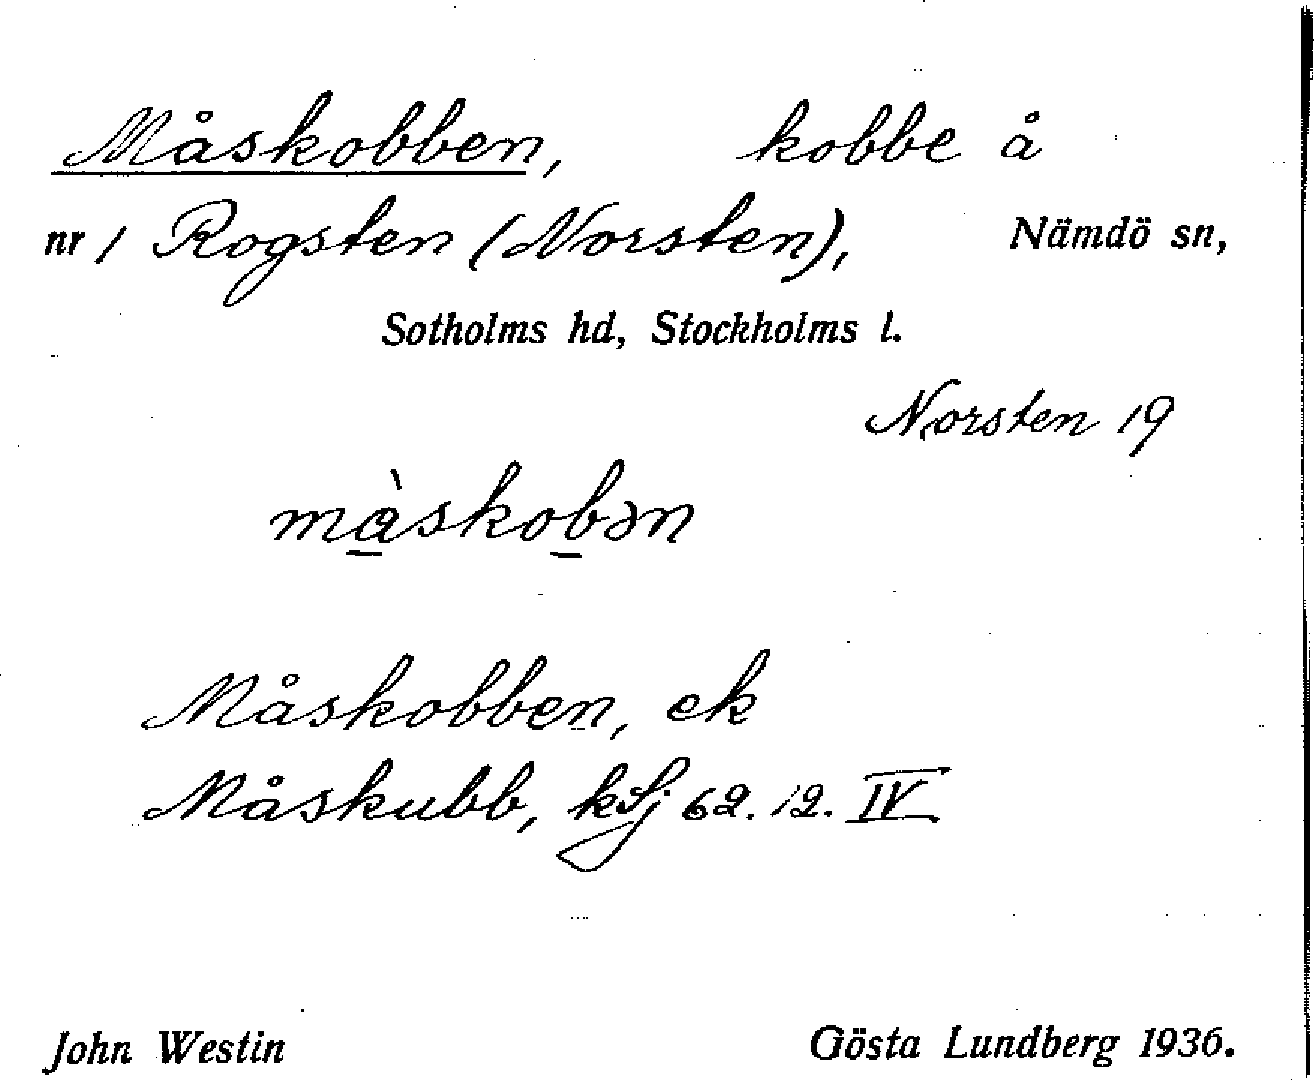 Måskobben, kobbe å
nr 1 Rogsten (Norsten), Nämdö sn,
Sotholms hd, Stockholms l.
Norsten 19
mà̱skoḇən
Måskobben, ek
Måskubb, kSj 62. 12. IV
John Westin Gösta Lundberg 1936.